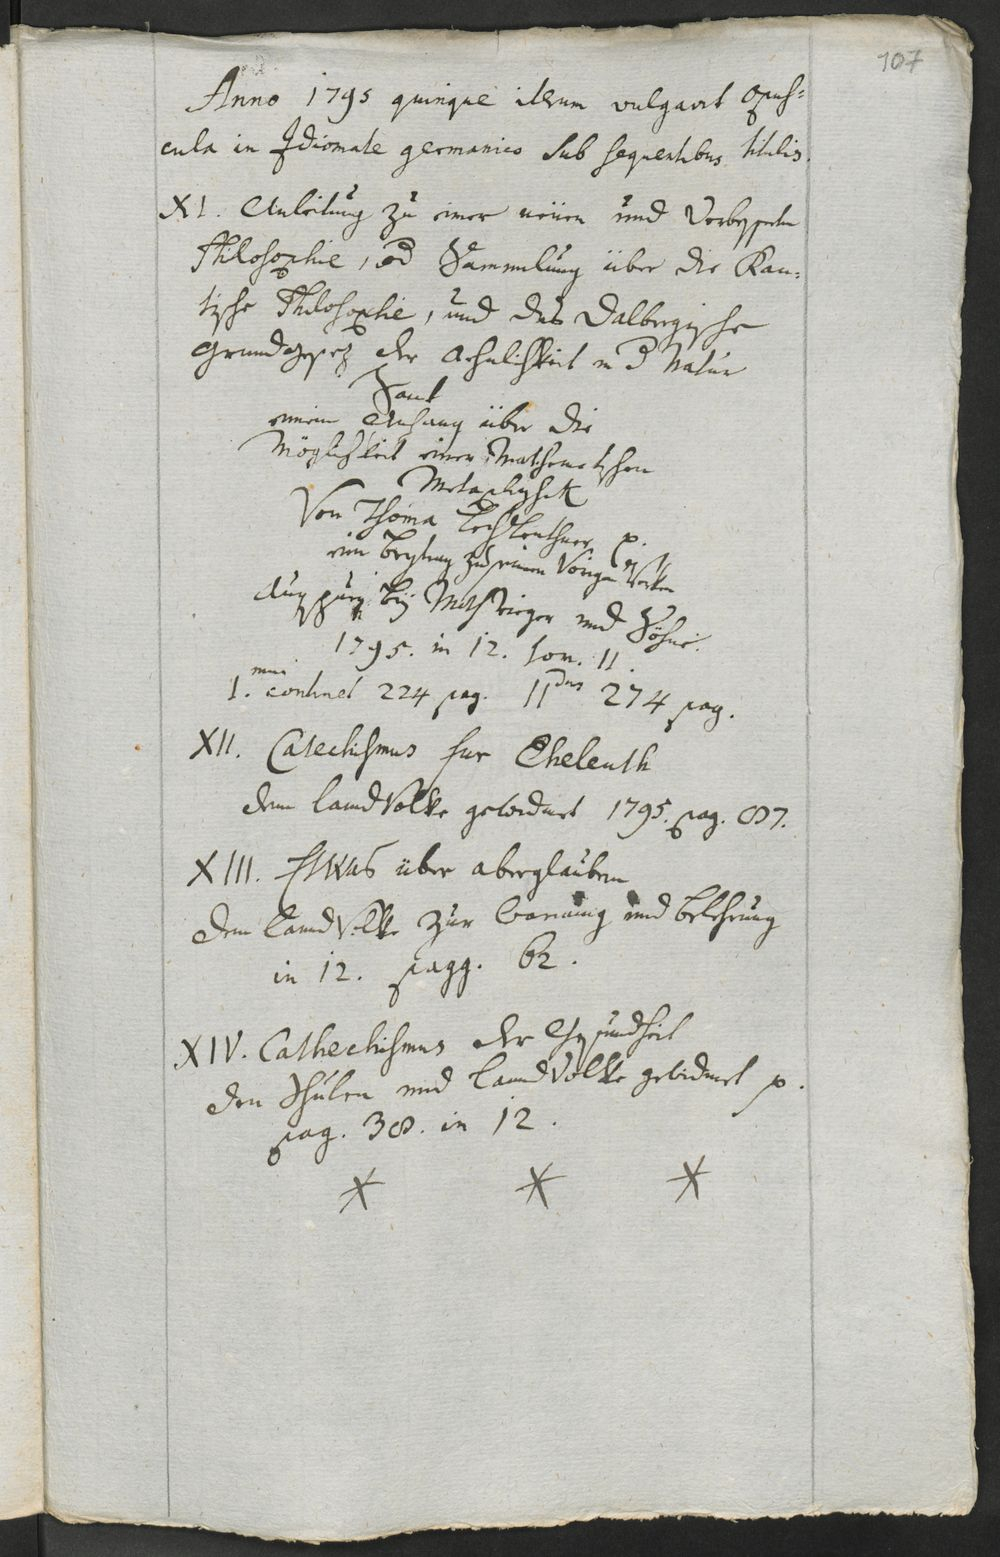 107
Anno 1795 quinque iterum vulgavit Opus=
cula in Idiomate germanico sub sequentibus titulis.
XI. Anleitung zu einer neüen und Verbesserten
Philosophie, od Sammlung über die Kan=
tische Philosophie, und das Dalbergische
Grundgesez der Aehnlichkeit in d Natur
Samt
einem Anhang über die
Möglichkeit einer Mathematischen
Metaphysik
Von Thoma Lechleuthner p.
ein Beytrag zu seinen Vorigen Werken
Augspurg bey Math Rieger und Söhne.
1795. in 12. tom. II.
I.mus continet 224 pag. IIdus 274 pag.
XII. Catechismus fur Eheleuth
dem landVolke gewidmet 1795. pag. 87.
XIII. Etwas über aberglauben
dem landVolke zur Warnung und belehrung
in 12. pagg. 62.
XIV. Cathechismus der Gesundheit
den Schulen und landVolke gewidmet p.
pag. 38. in 12.
* * *